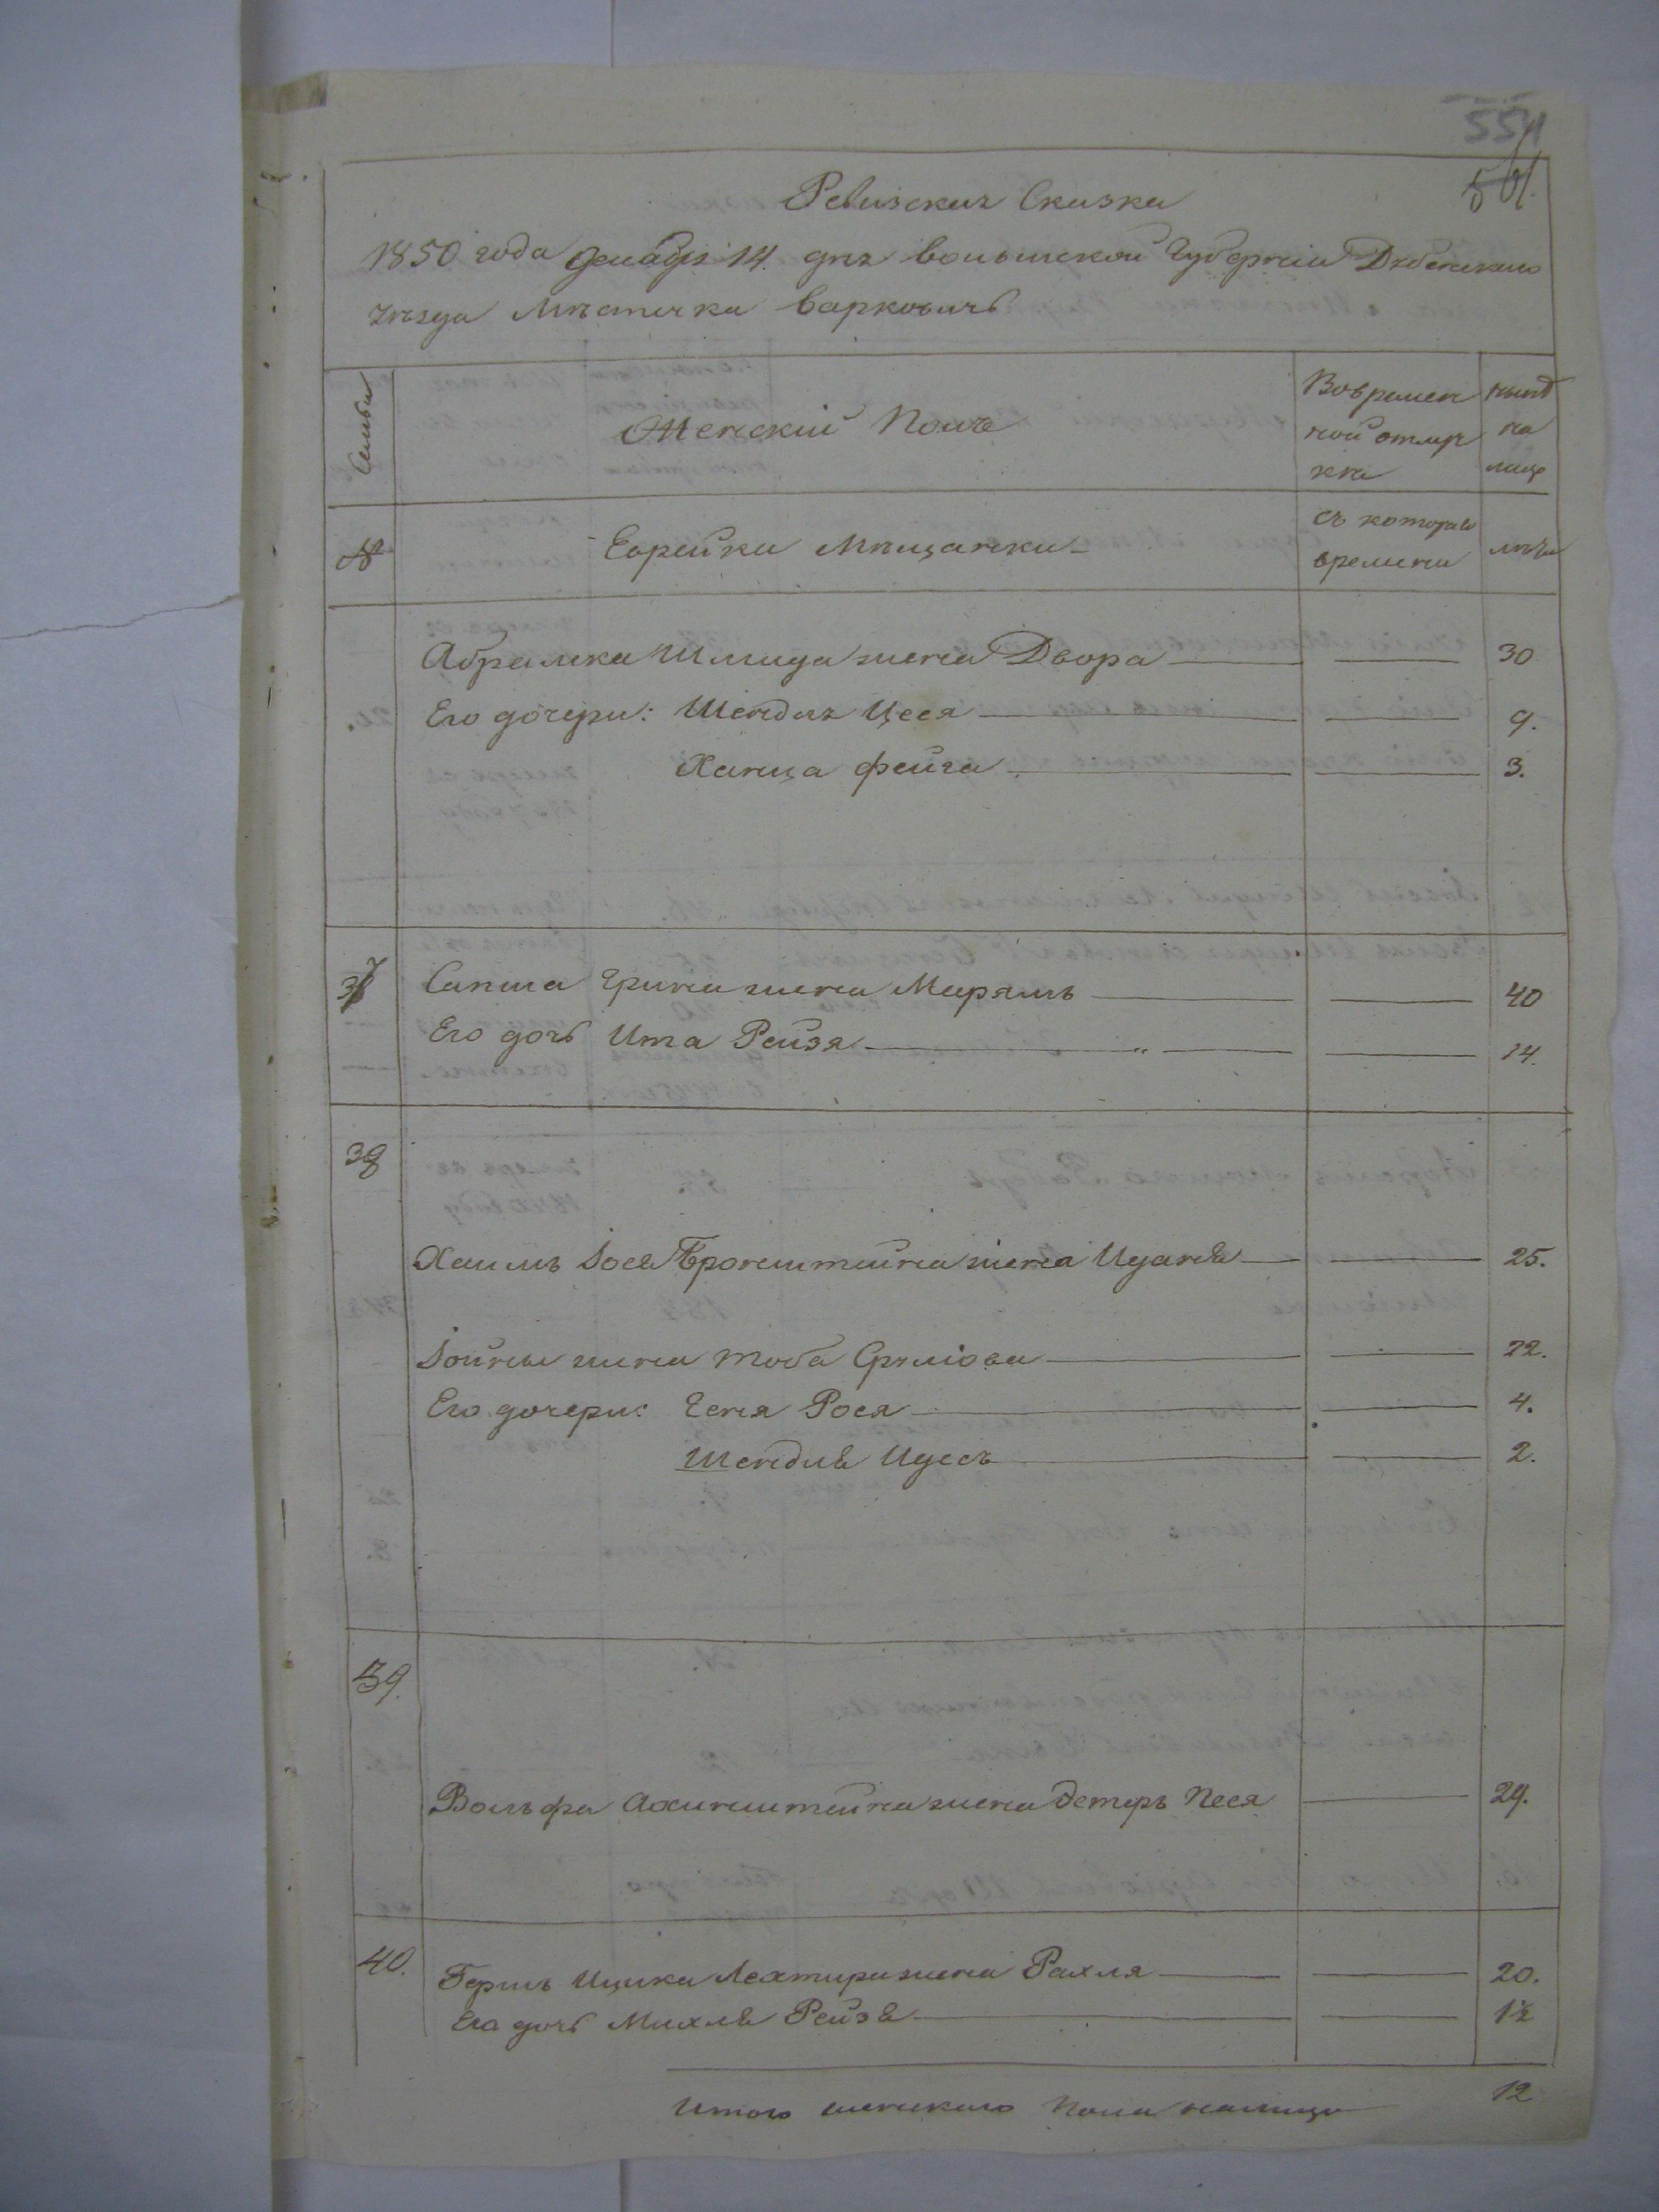 554
561.
Ревизская Сказка
1850 года Декабря 14. дня Волынской Губернии Дубенскаго
уезда Местечка Варковичь
Семьи
Женский Полъ
Вовремен
ной отлуч
ке
ныне
на
лицо
№
Еврейки Мещанки
съ котораго
времени
лета
Абрамка Шмида жена Двора 30
Его дочери: Шендля Цеся 9.
Ханца Фейга 3.
37 Сапша Грина жена Мирямъ 40
Его дочь Ита Рейзя 14.
38
Хаимъ Іося Бронштейна жена Иданя 25.
Іойны жена Тоба Срулiова 22.
Его дочери: Геня Рося 4.
Шендля Идесъ 2.
39.
Вольфа Ахинштейна жена Эстеръ Песя 29.
40. Гершъ Ицика Лехтира жена Рахля 20.
Его дочь Михля Рейзя 1½
Итого женскаго Пола налицо 12